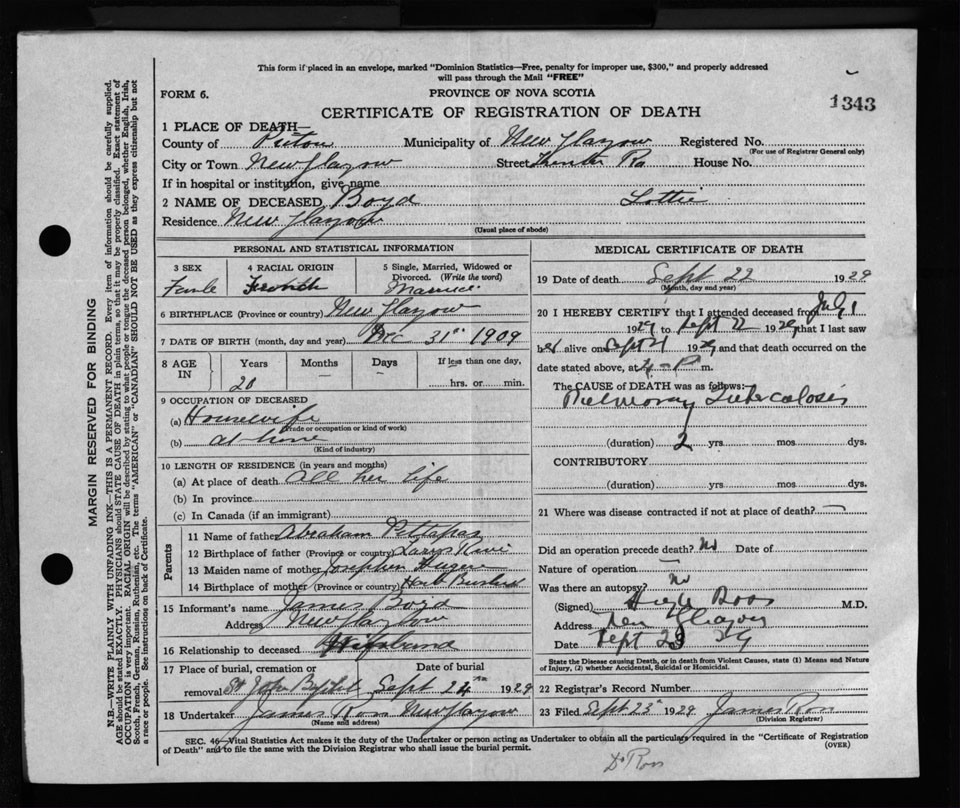 This form if placed in an envelope, marked "Dominion Statistics—Free, penalty for improper use, $300," and properly addressed
will pass through the Mail "FREE"
FORM 6.
PROVINCE OF NOVA SCOTIA
1343
CERTIFICATE OF REGISTRATION OF DEATH
1 PLACE OF DEATH—
County of Pictou Municipality of New Glasgow Registered No.
(For use of Registrar General only)
City or Town New Glasgow Street House No.
If in hospital or institution, give name
2 NAME OF DECEASED Boyd Lottie
Residence New Glasgow
(Usual place of abode)
PERSONAL AND STATISTICAL INFORMATION
3 SEX
4 RACIAL ORIGIN French
5 Single, Married, Widowed or
Divorced. (Write the word)
Married
6 BIRTHPLACE (Province or country) New Glasgow
7 DATE OF BIRTH (month, day and year) Dec 31st 1909
8 AGE IN
Years Months Days If less than one day,
20 — — hrs. or min.
9 OCCUPATION OF DECEASED
(a) Housewife
(Trade or occupation or kind of work)
(b) at home
(Kind of industry)
10 LENGTH OF RESIDENCE (in years and months)
(a) At place of death All her life
(b) In province
(c) In Canada (if an immigrant)
Parents
11 Name of father Abraham
12 Birthplace of father (Province or country)
13 Maiden name of mother
14 Birthplace of mother (Province or country)
15 Informant's name James Boyd
Address New Glasgow
16 Relationship to deceased
17 Place of burial, cremation or Date of burial
removal St John Sept 24th 1929
18 Undertaker James Ross New Glasgow
(Name and address)
MEDICAL CERTIFICATE OF DEATH
19 Date of death Sept 22 1929
(Month, day and year)
20 I HEREBY CERTIFY that I attended deceased from July 1
1929 to Sept 22 1929 that I last saw
her alive on Sept 21 1929 and that death occurred on the
date stated above, at 4 P m.
The CAUSE OF DEATH was as follows:
Pulmonary Tuberculosis
(duration) 2 yrs. mos. dys.
CONTRIBUTORY
(duration) yrs. mos. dys.
21 Where was disease contracted if not at place of death? —
Did an operation precede death? No Date of
Nature of operation —
Was there an autopsy? No
(Signed) Ross M.D.
Address New Glasgow
Date Sept 23 29
State the Disease causing Death, or in death from Violent Causes, state (1) Means and Nature
of Injury, (2) whether Accidental, Suicidal or Homicidal.
22 Registrar's Record Number
23 Filed Sept 23rd 1929 James Ross
(Division Registrar)
SEC. 46—Vital Statistics Act makes it the duty of the Undertaker or person acting as Undertaker to obtain all the particulars required in the "Certificate of Registration
of Death" and to file the same with the Division Registrar who shall issue the burial permit. (OVER)
Dr Ross
MARGIN RESERVED FOR BINDING
N.B.—WRITE PLAINLY WITH UNFADING INK—THIS IS A PERMANENT RECORD. Every item of information should be carefully supplied.
AGE should be stated EXACTLY. PHYSICIANS should STATE CAUSE OF DEATH in plain terms, so that it may be properly classified. Exact statement of
OCCUPATION is very important. RACIAL ORIGIN will be described by stating to what people or tongue the deceased person belonged, whether English, Irish,
Scotch, French, German, Russian, Ruthenian, etc. The terms "AMERICAN" or "CANADIAN" SHOULD NOT BE USED as they express citizenship but not
a race or people. See instructions on back of Certificate.